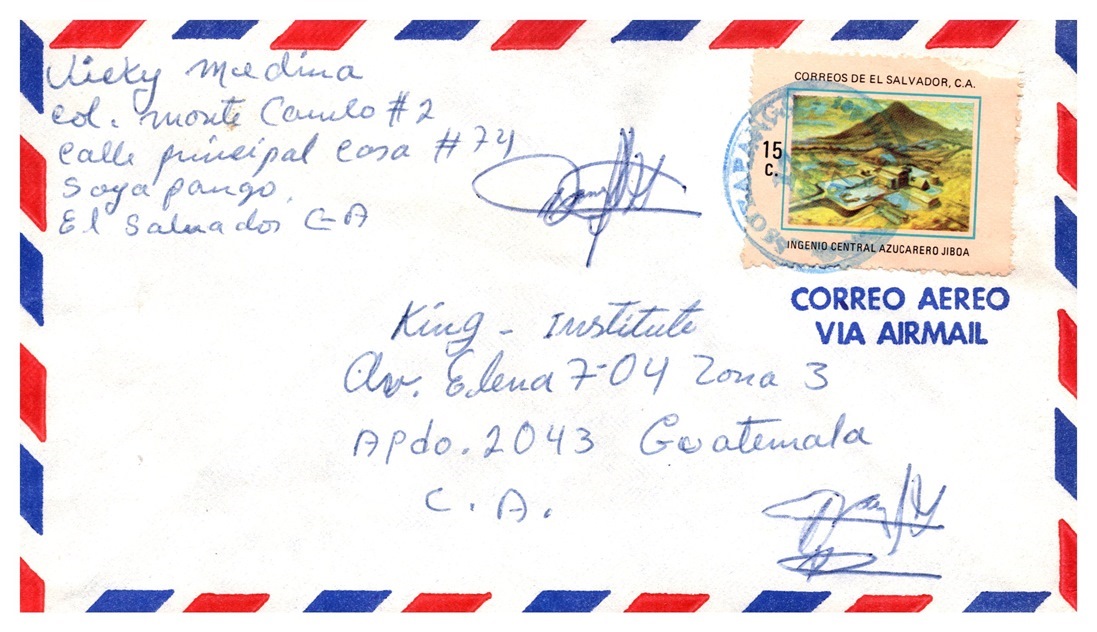 Vicky Medina
Col. Monte Camelo #2
Calle principal Casa #74
Soya pango,
El Salvador C-A
CORREOS DE EL SALVADOR, C.A.
15
C.
INGENIO CENTRAL AZUCARERO JIBOA
SOYAPANGO
CORREO AEREO
VIA AIRMAIL
King - Institute
Av. Elena 7-04 Zona 3
Apdo. 2043 Guatemala
C. A.